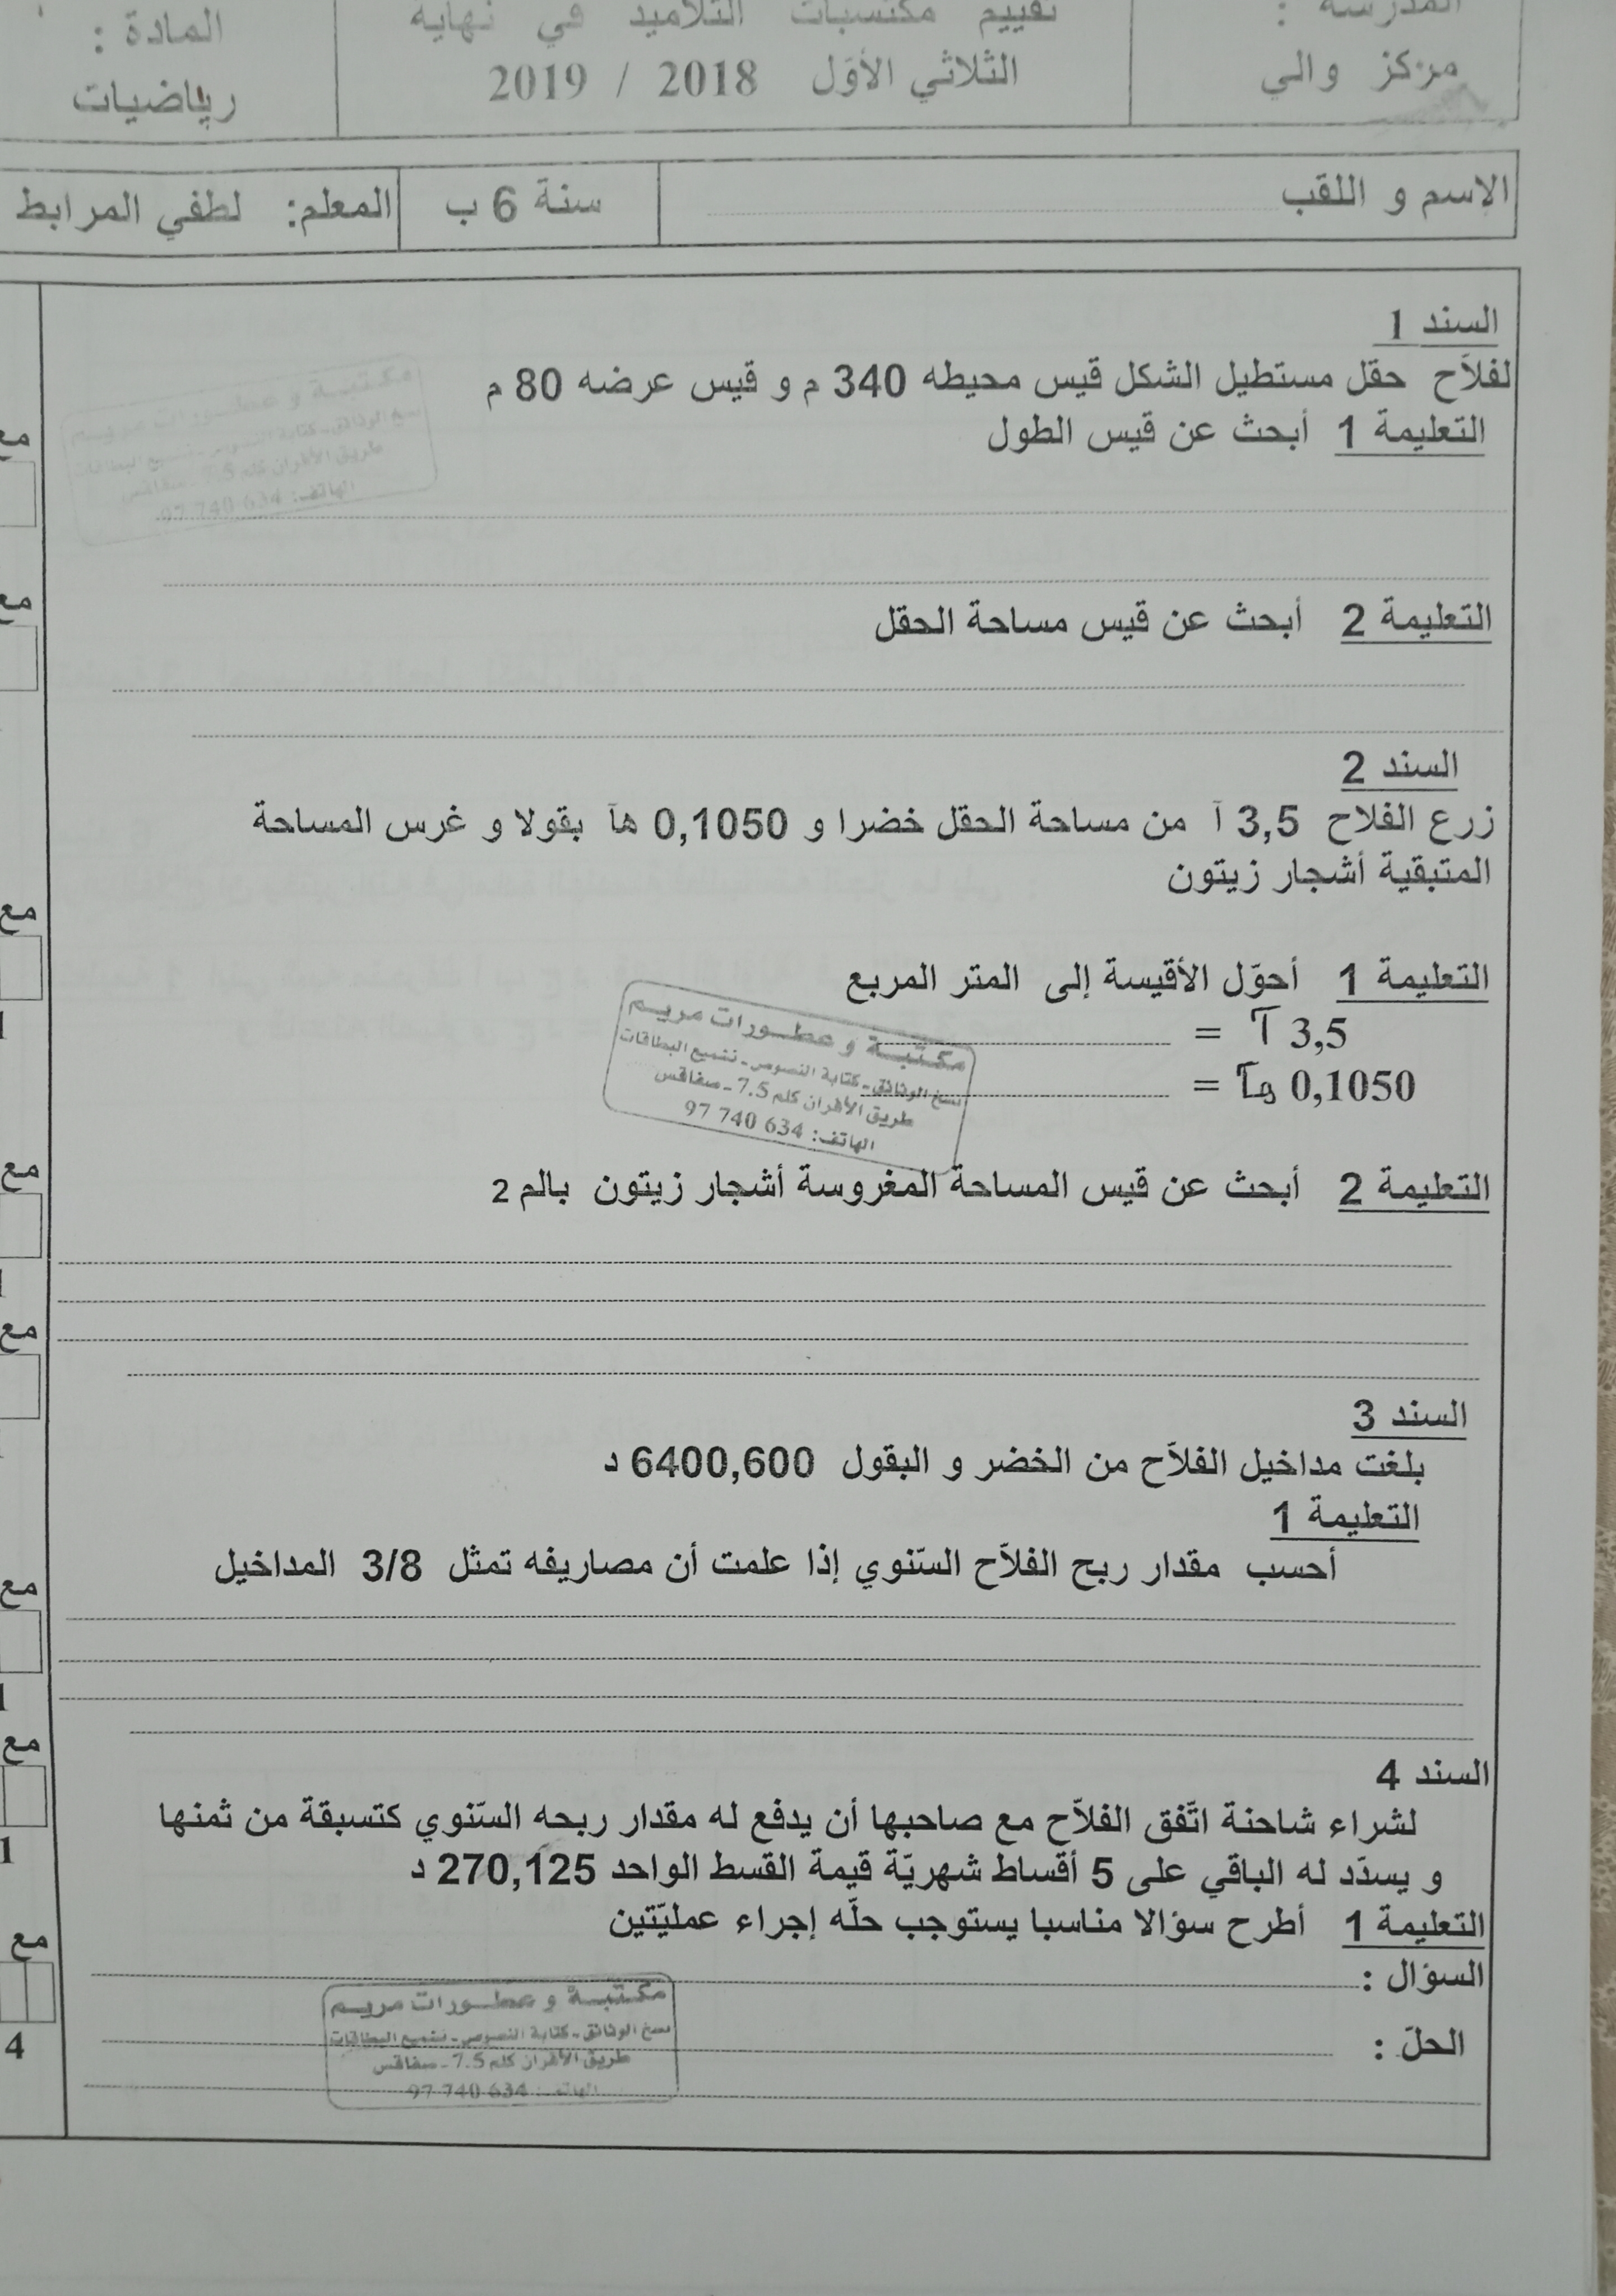 المدرسة :
مركز والي
تقييم مكتسبات التلاميذ في نهاية
الثلاثي الأوّل 2018 / 2019
المادة :
رياضيات
الإسم و اللقب
سنة 6 ب
المعلم: لطفي المرابط
السند 1
لفلاّح حقل مستطيل الشكل قيس محيطه 340 م و قيس عرضه 80 م
التعليمة 1 أبحث عن قيس الطول
مع
مع
التعليمة 2 أبحث عن قيس مساحة الحقل
السند 2
زرع الفلاح 3,5 آ من مساحة الحقل خضرا و 0,1050 هآ بقولا و غرس المساحة
المتبقية أشجار زيتون
مع
1
التعليمة 1 أحوّل الأقيسة إلى المتر المربع
3,5 آ = ........
0,1050 هآ = ........
مكتبة و عطورات مريم
نسخ الوثائق - كتابة النصوص - تشميع البطاقات
طريق الأفران كلم 7.5 - صفاقس
الهاتف: 634 740 97
مع
التعليمة 2 أبحث عن قيس المساحة المغروسة أشجار زيتون بالم 2
مع
السند 3
بلغت مداخيل الفلاّح من الخضر و البقول 6400,600 د
التعليمة 1
أحسب مقدار ربح الفلاّح السّنوي إذا علمت أن مصاريفه تمثل 3/8 المداخيل
مع
1
مع
1
السند 4
لشراء شاحنة اتّفق الفلاّح مع صاحبها أن يدفع له مقدار ربحه السّنوي كتسبقة من ثمنها
و يسدّد له الباقي على 5 أقساط شهريّة قيمة القسط الواحد 270,125 د
التعليمة 1 أطرح سؤالا مناسبا يستوجب حلّه إجراء عمليّتين
مع
4
السؤال :
الحلّ :
مكتبة و عطورات مريم
نسخ الوثائق - كتابة النصوص - تشميع البطاقات
طريق الأفران كلم 7.5 - صفاقس
الهاتف: 634 740 97